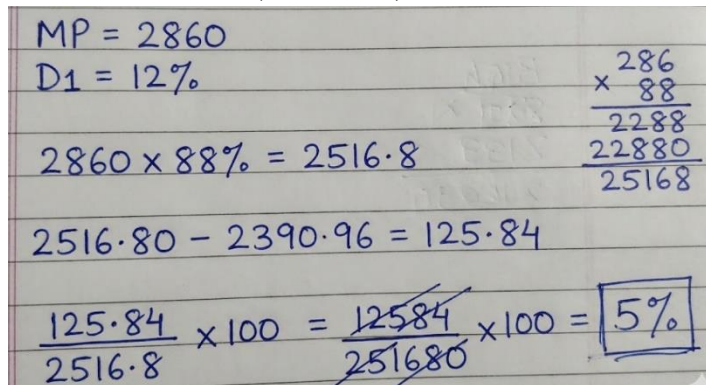 MP = 2860
D1 = 12%
286
× 88
2288
22880
25168
2860 × 88% = 2516.8
2516.80 - 2390.96 = 125.84
125.84/2516.8 × 100 = 12584/251680 × 100 = 5%